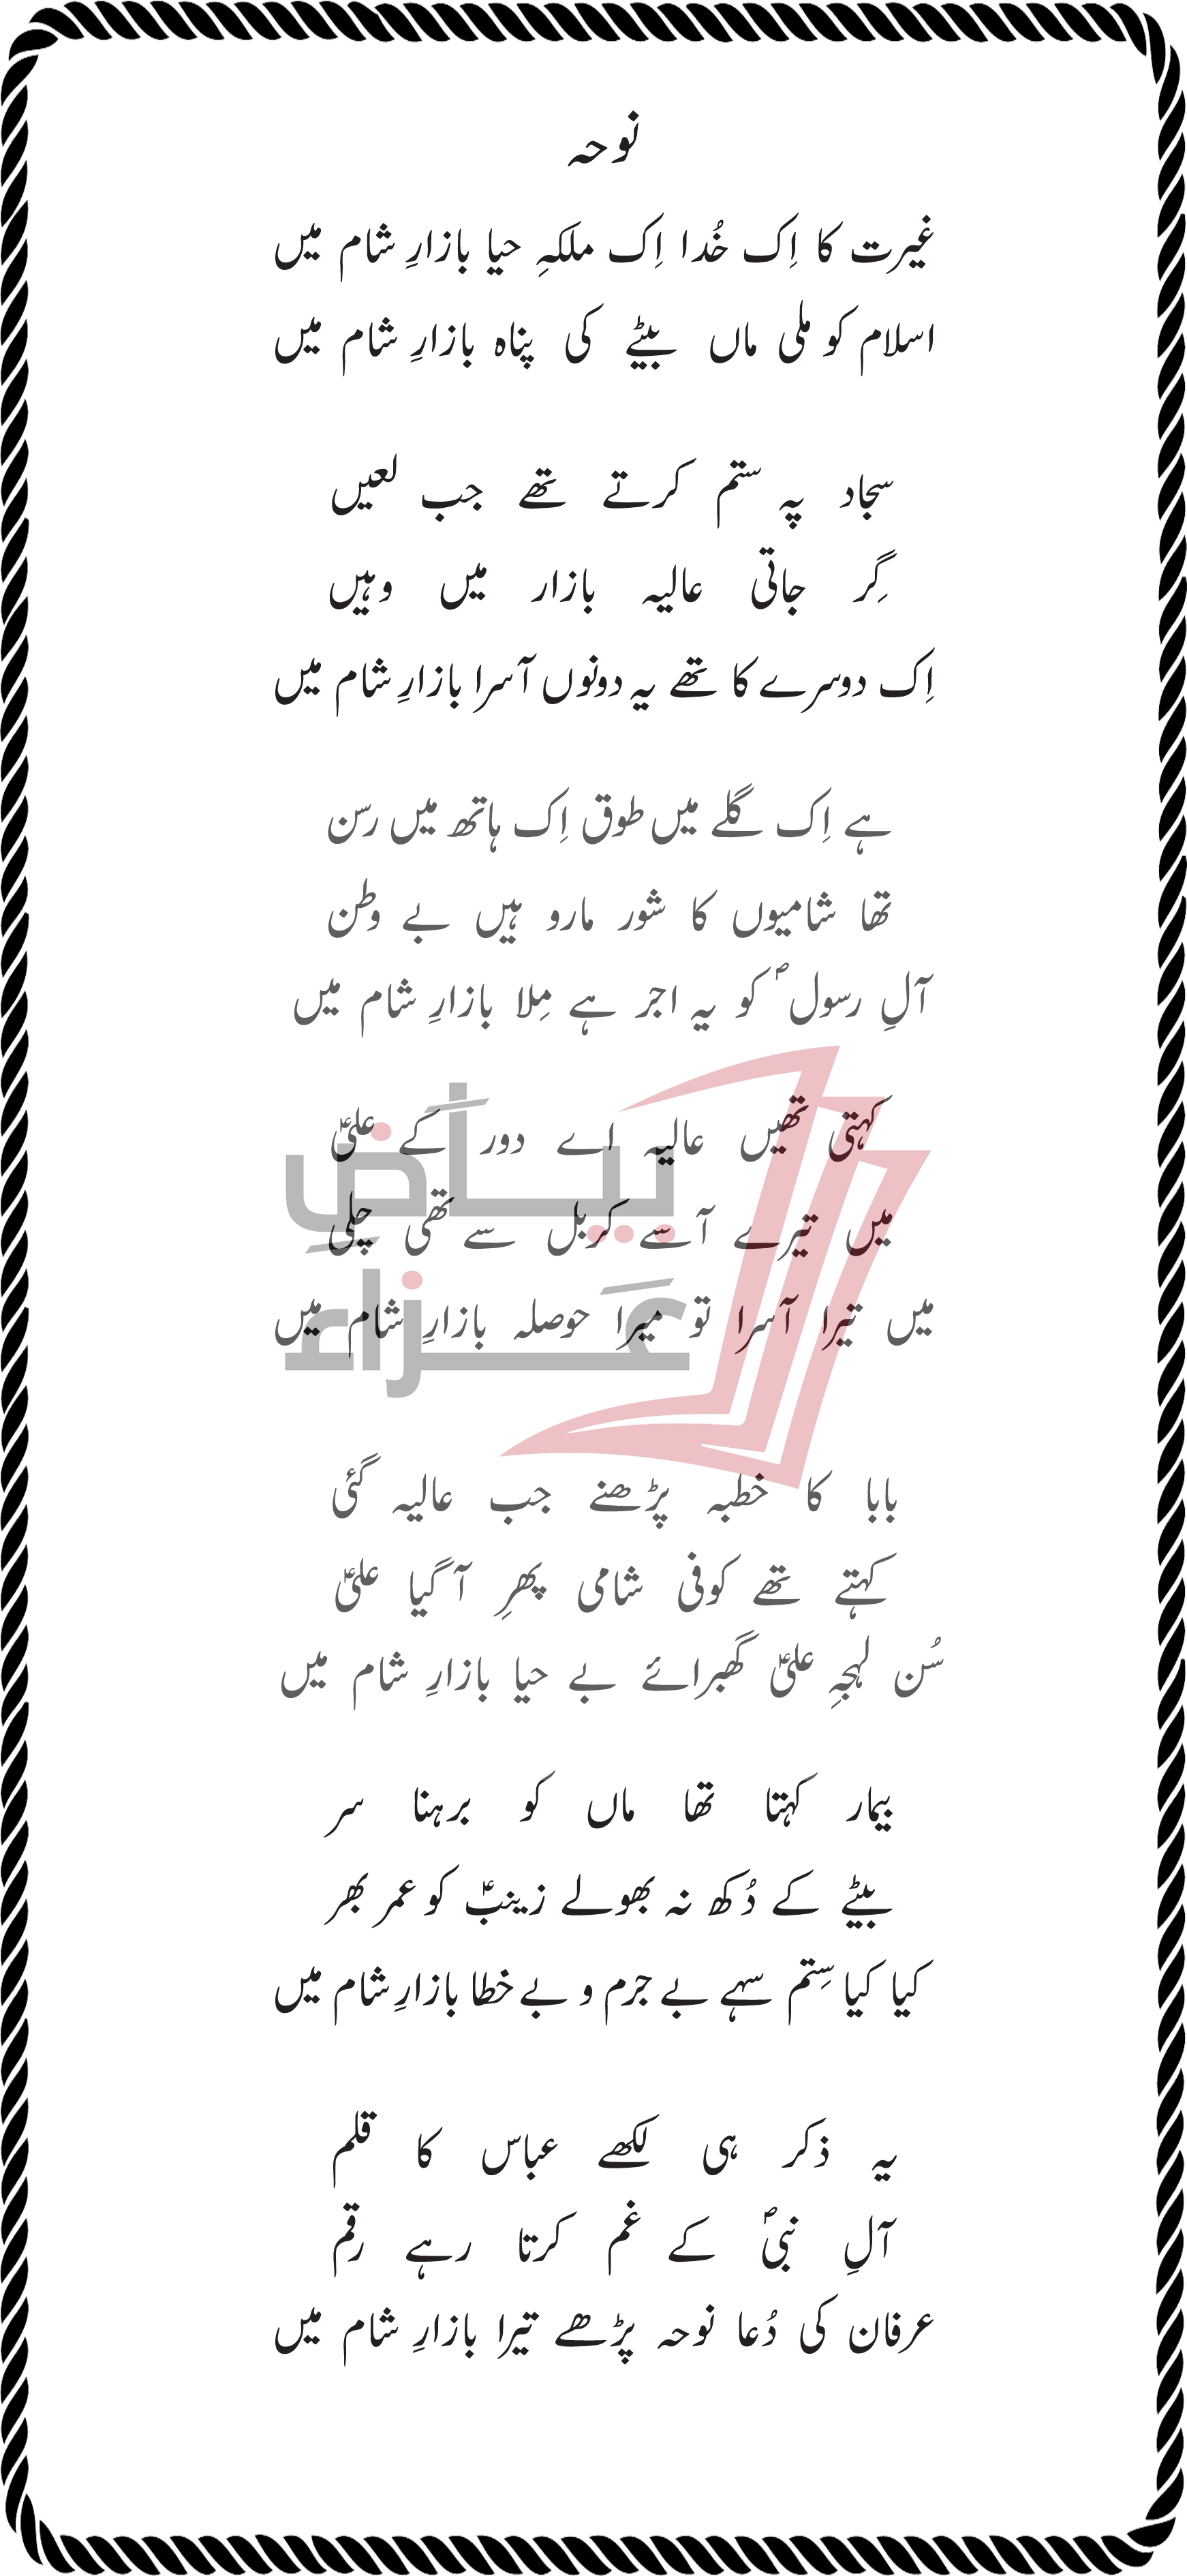 نوحہ
غیرت کا اِک خُدا اِک ملکہِ حیا بازارِ شام میں
اسلام کو ملی ماں بیٹے کی پناہ بازارِ شام میں
سجاد پہ ستم کرتے تھے جب لعیں
گِر جاتی عالیہ بازار میں وہیں
اِک دوسرے کا تھے یہ دونوں آسرا بازارِ شام میں
ہے اِک گلے میں طوق اِک ہاتھ میں رسن
تھا شامیوں کا شور مارو ہیں بے وطن
آلِ رسولؐ کو یہ اجر ہے مِلا بازارِ شام میں
کہتی تھیں عالیہ اے دور کے علیؑ
میں تیرے آسے کربل سے تھی چلی
میں تیرا آسرا تو میرا حوصلہ بازارِ شام میں
بیاضِ
عزاء
بابا کا خطبہ پڑھنے جب عالیہ گئی
کہتے تھے کوفی شامی پھرِ آ گیا علیؑ
سُن لہجہِ علیؑ گھبرائے بے حیا بازارِ شام میں
بیمار کہتا تھا ماں کو برہنا سر
بیٹے کے دُکھ نہ بھولے زینبؑ کو عمر بھر
کیا کیا سِتم سہے بے جرم و بے خطا بازارِ شام میں
یہ ذکر ہی لکھے عباس کا قلم
آلِ نبیؐ کے غم کرتا رہے رقم
عرفان کی دُعا نوحہ پڑھے تیرا بازارِ شام میں